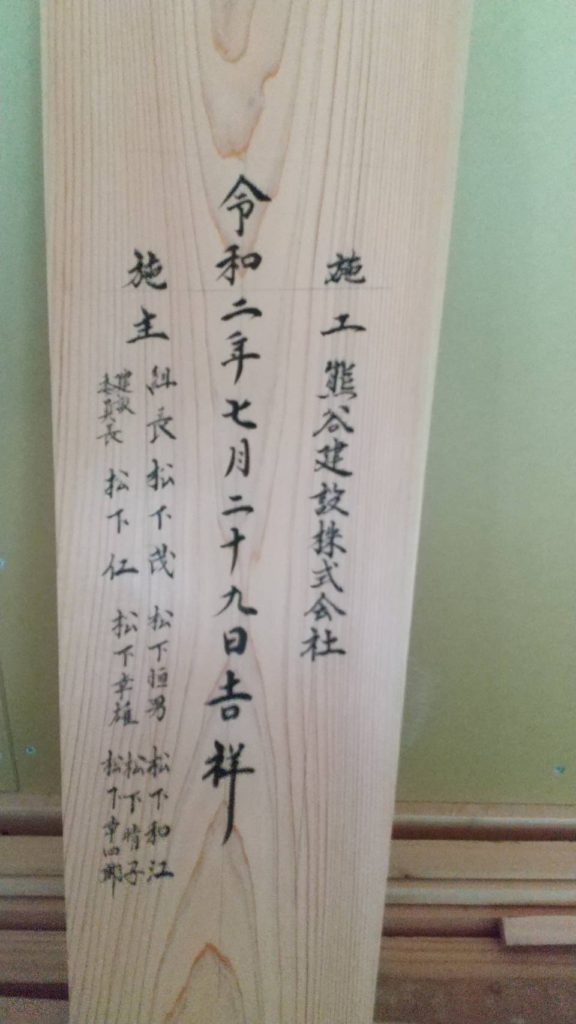 施工 熊谷建設株式会社
令和二年七月二十九日吉祥
施主
組長 松下茂 松下恒男 松下和江
松下晴子
建設委員長 松下仁 松下幸雄 松下幸四郎